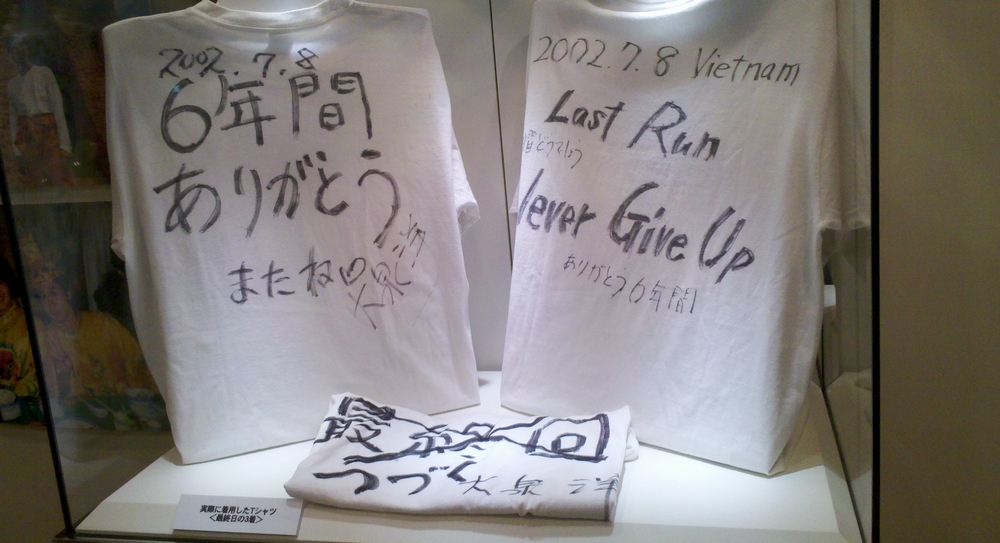 2002.7.8
6年間
ありがとう
またね
大泉洋
2002.7.8 Vietnam
Last Run
どうでしょう
ever Give Up
ありがとう6年間
最終回
つづく
大泉洋
実際に着用したTシャツ
<最終日の3着>